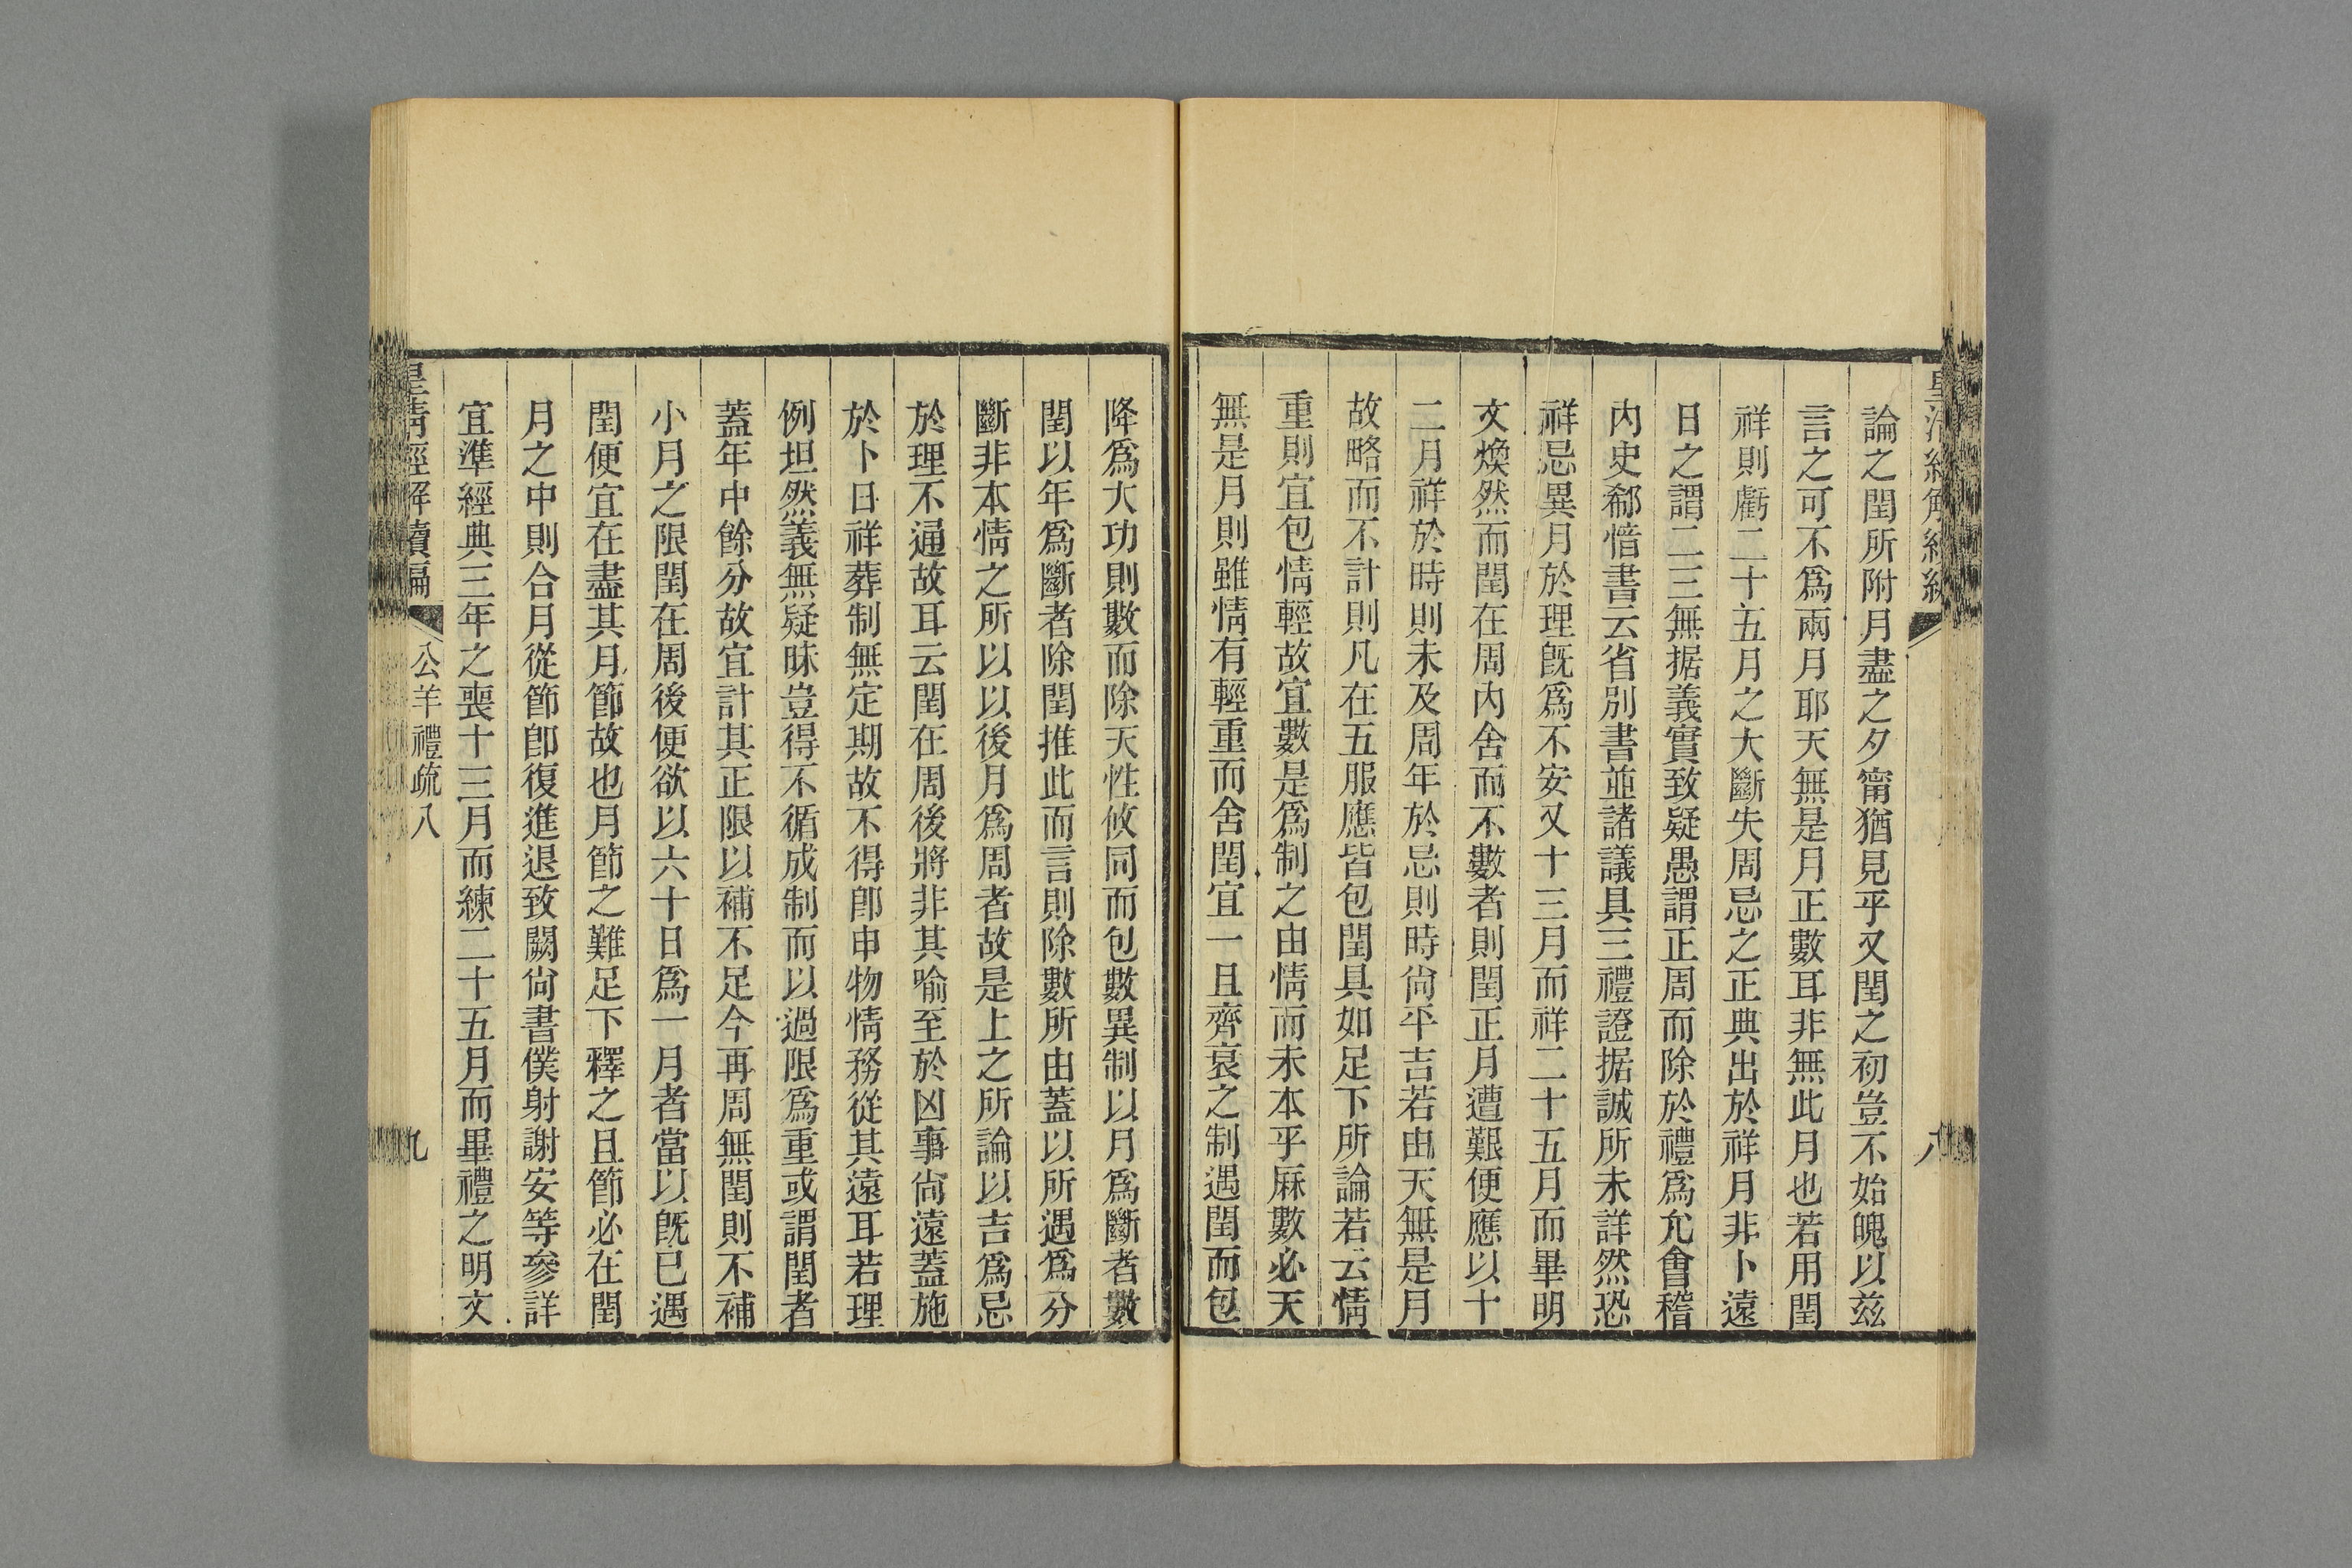 論之閏所附月盡之夕甯猶見乎又閏之初豈不始魄以兹
言之可不爲兩月耶天無是月正數耳非無此月也若用閏
祥則虧二十五月之大斷失周忌之正典出於祥月非卜遠
日之謂二三無据義實致疑愚謂正周而除於禮爲允會稽
內史郗愔書云省別書並諸議具三禮證据誠所未詳然恐
祥忌異月於理旣爲不安又十三月而祥二十五月而畢明
文煥然而閏在周內舍而不數者則閏正月遭艱便應以十
二月祥於時則未及周年於忌則時尙平吉若由天無是月
故略而不計則凡在五服應皆包閏具如足下所論若云情
重則宜包情輕故宜數是爲制之由情而未本乎麻數必天
無是月則雖情有輕重而舍閏宜一且齊衰之制遇閏而包
降爲大功則數而除天性攸同而包數異制以月爲斷者數
閏以年爲斷者除閏推此而言則除數所由蓋以所遇爲分
斷非本情之所以以後月爲周者故是上之所論以吉爲忌
於理不通故耳云閏在周後將非其喻至於凶事尙遠蓋施
於卜日祥葬制無定期故不得卽申物情務從其遠耳若理
例坦然義無疑昧豈得不循成制而以過限爲重或謂閏者
蓋年中餘分故宜計其正限以補不足今再周無閏則不補
小月之限閏在周後便欲以六十日爲一月者當以旣已遇
閏便宜在盡其月節故也月節之難足下釋之且節必在閏
月之中則合月從節卽復進退致闕尙書僕射謝安等參詳
宜準經典三年之喪十三月而練二十五月而畢禮之明文
皇清經解續編 公羊禮疏八 九